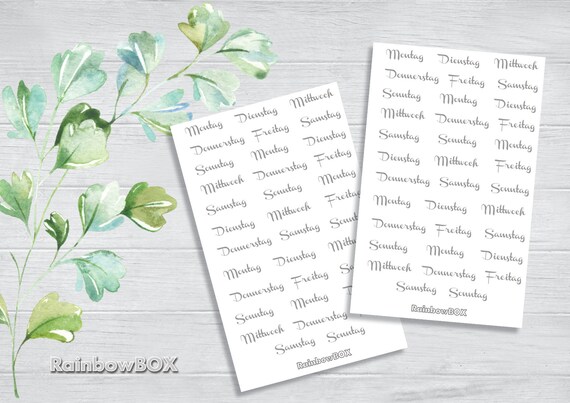 Montag Dienstag Mittwoch
Donnerstag Freitag Samstag
Sonntag Montag Dienstag
Mittwoch Donnerstag Freitag
Samstag Sonntag Montag
Dienstag Mittwoch Freitag
Donnerstag Samstag Sonntag
Montag Dienstag Mittwoch
Donnerstag Freitag Samstag
Sonntag Montag Dienstag
Mittwoch Donnerstag Freitag
Samstag Sonntag
RainbowBOX
Montag Dienstag Mittwoch
Donnerstag Freitag Samstag
Sonntag Montag Dienstag
Mittwoch Donnerstag Freitag
Samstag Sonntag Montag
Dienstag Mittwoch Freitag
Donnerstag Samstag Sonntag
Montag Dienstag Mittwoch
Donnerstag Freitag Samstag
Sonntag Montag Dienstag
Mittwoch Donnerstag Freitag
Samstag Sonntag
RainbowBOX
RainbowBOX